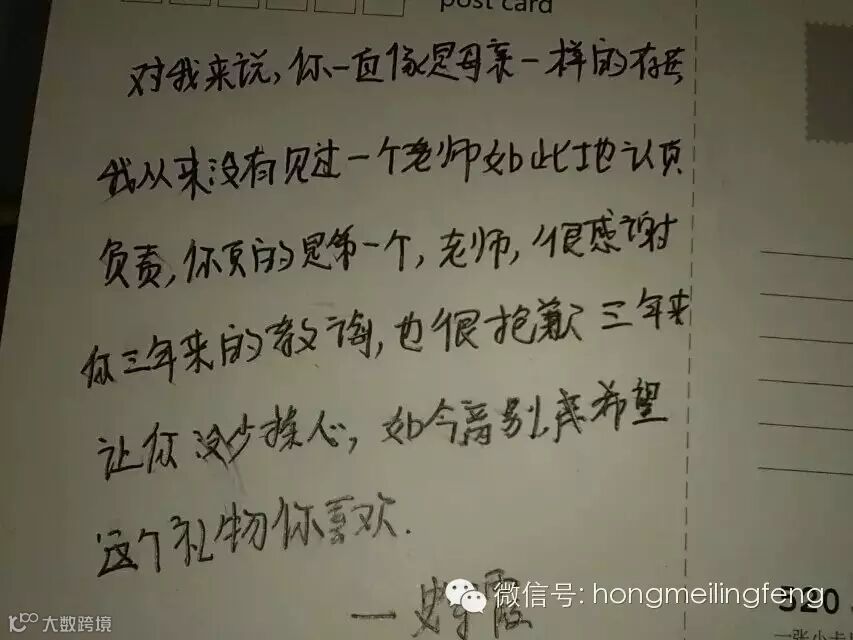 post card
对我来说,你一直像是母亲一样的存在
我从来没有见过一个老师如此地认真
负责,你真的是第一个,老师,很感谢
你三年来的教诲,也很抱歉三年来
让你没少操心,如今离别我希望
这个礼物你喜欢.
一 霞
微信号: hongmeilingfeng
520
一张小卡
大数跨境